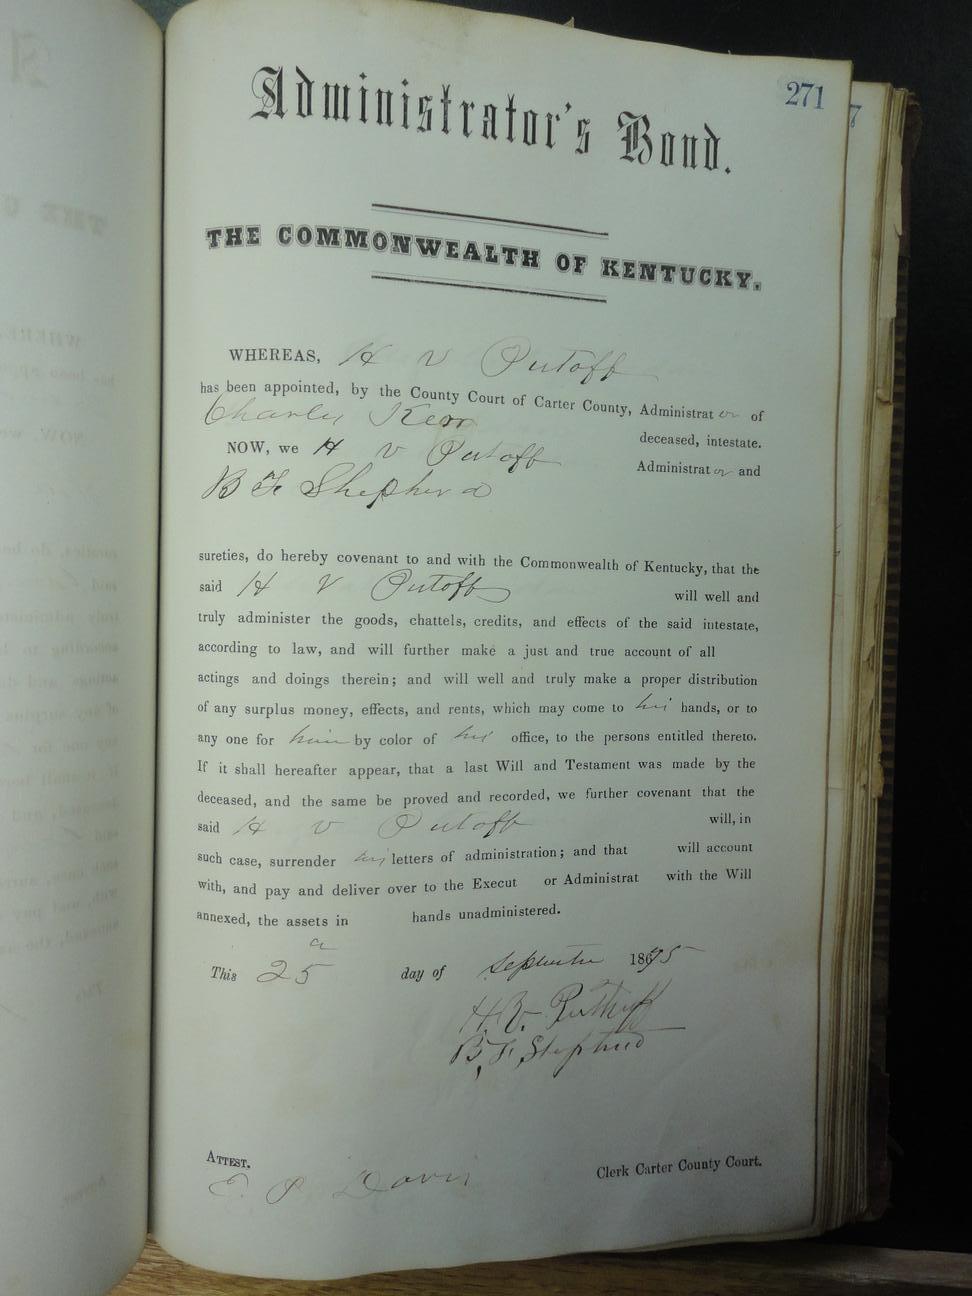 271
Administrator's Bond.
THE COMMONWEALTH OF KENTUCKY.
WHEREAS, H V Putoff
has been appointed, by the County Court of Carter County, Administrator of
Charley Kerr
deceased, intestate.
NOW, we H V Putoff Administrator and
B F Shepherd
sureties, do hereby covenant to and with the Commonwealth of Kentucky, that the
said H V Putoff will well and
truly administer the goods, chattels, credits, and effects of the said intestate,
according to law, and will further make a just and true account of all
actings and doings therein; and will well and truly make a proper distribution
of any surplus money, effects, and rents, which may come to his hands, or to
any one for him by color of his office, to the persons entitled thereto.
If it shall hereafter appear, that a last Will and Testament was made by the
deceased, and the same be proved and recorded, we further covenant that the
said H V Putoff will, in
such case, surrender his letters of administration; and that will account
with, and pay and deliver over to the Execut or Administrat with the Will
annexed, the assets in hands unadministered.
This 25 day of September 1895
H. V. Puthuff
B. F. Shepherd
ATTEST.
E. P. Davis Clerk Carter County Court.